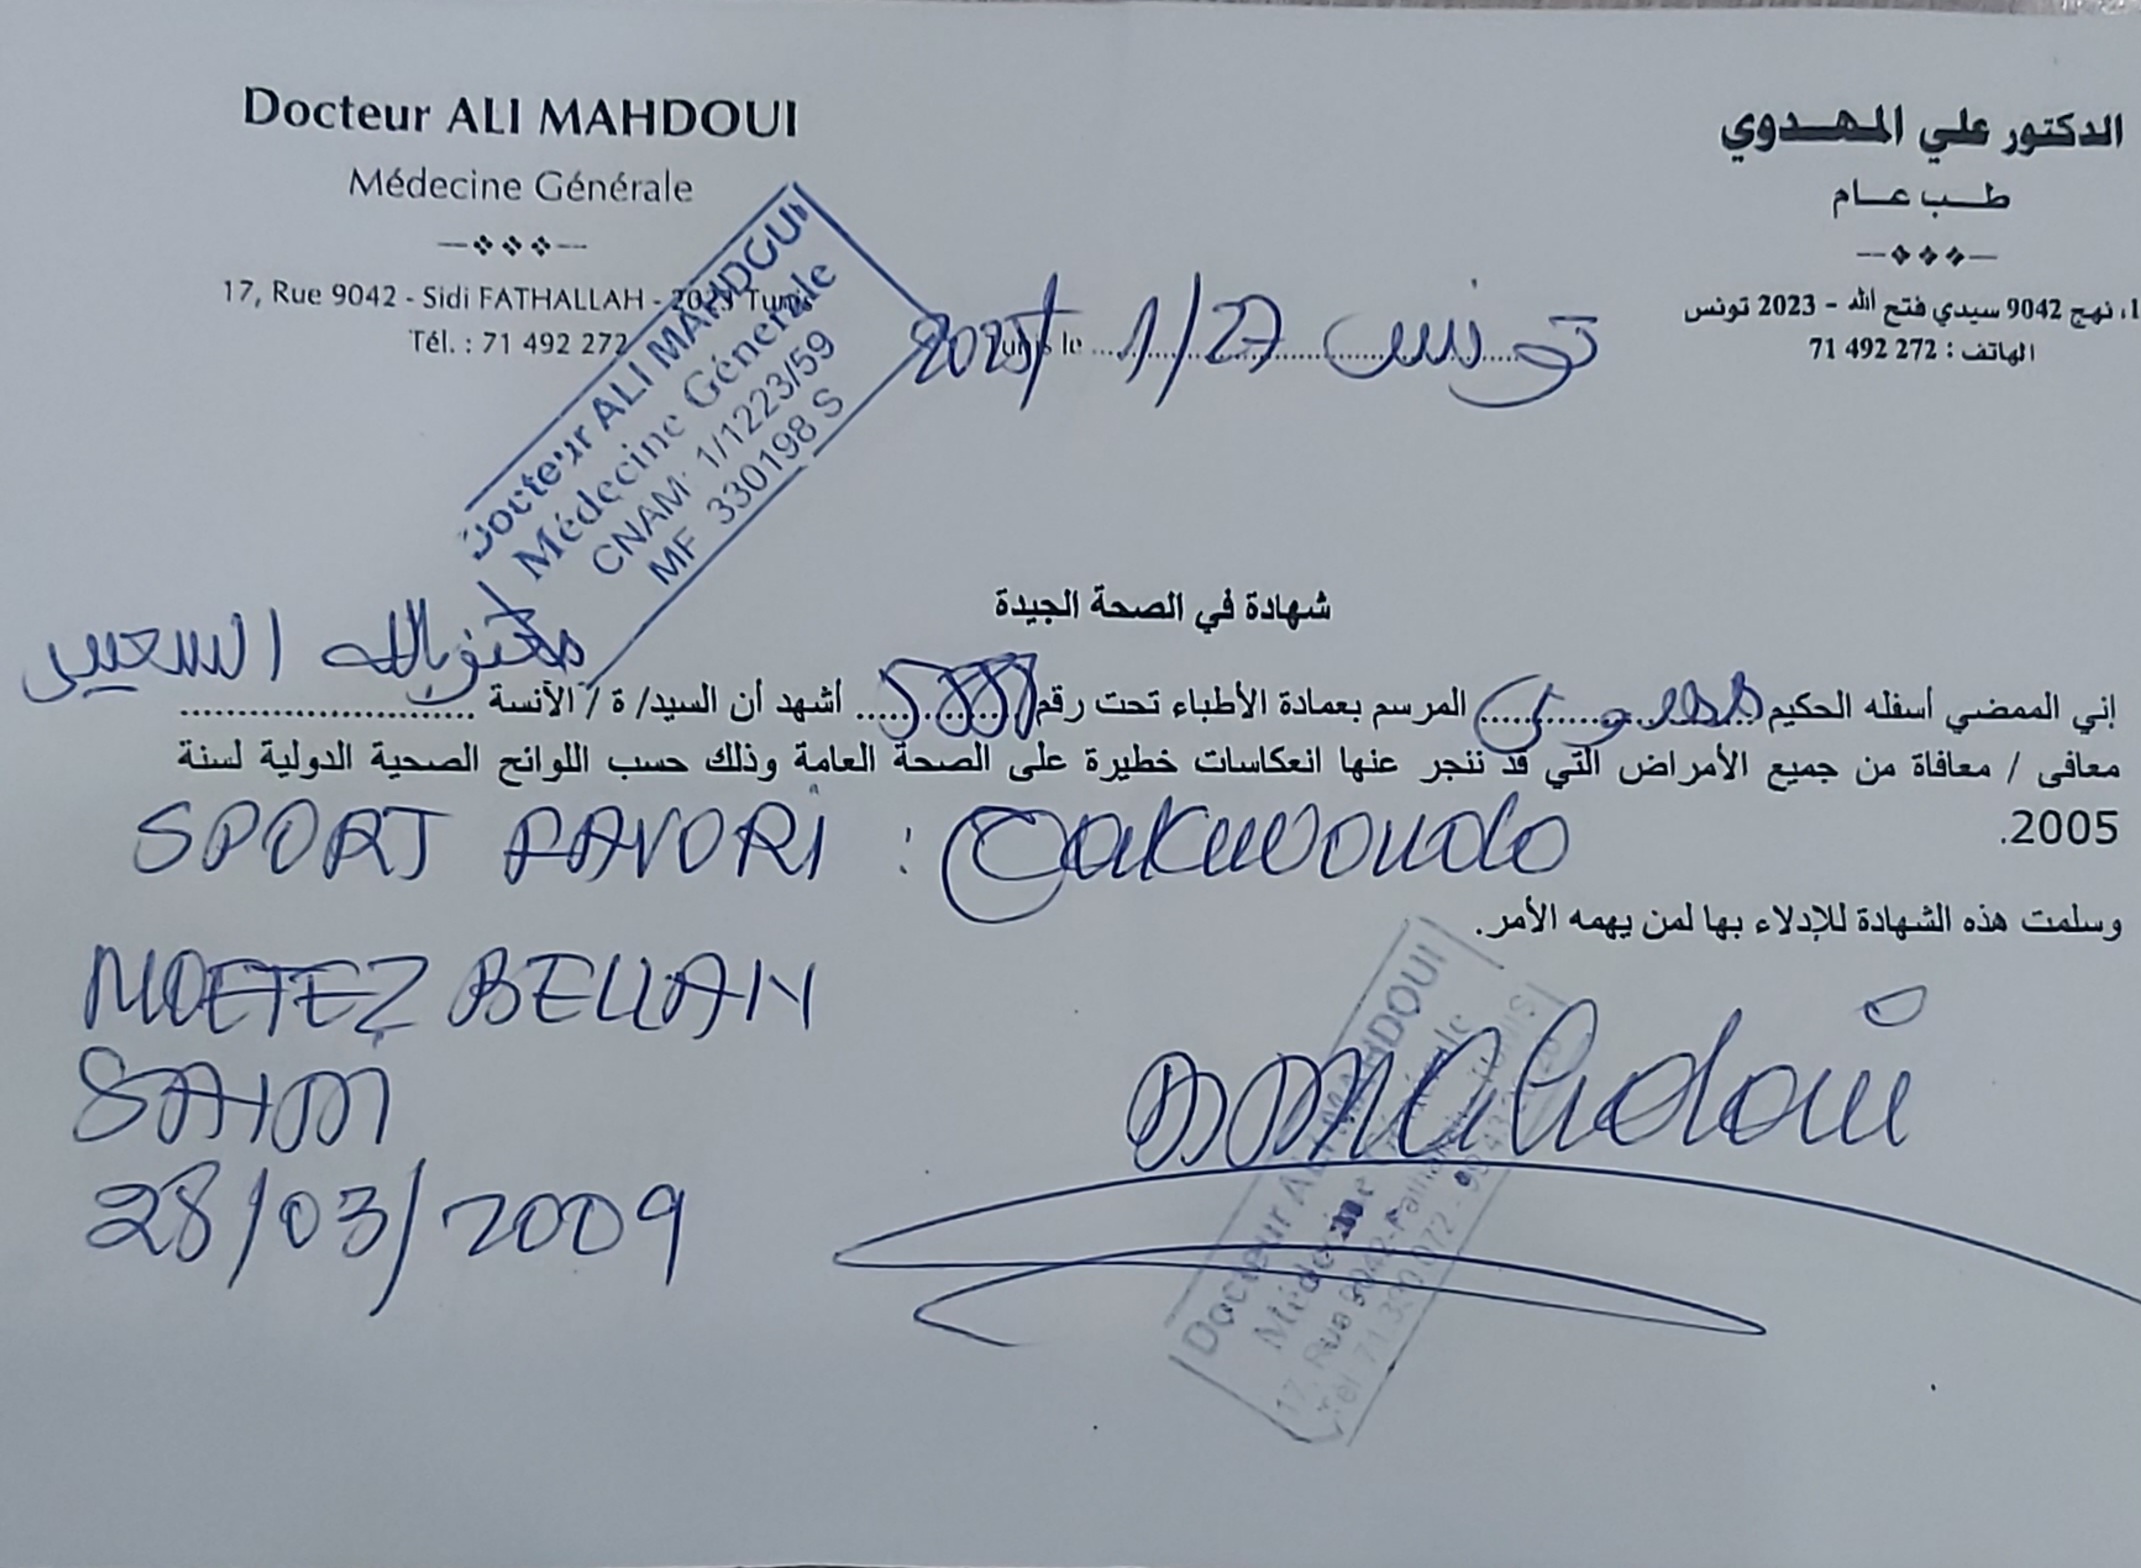 Docteur ALI MAHDOUI
Médecine Générale
17, Rue 9042 - Sidi FATHALLAH - 2023 Tunis
Tél. : 71 492 272
الدكتور علي المهدوي
طب عام
1، نهج 9042 سيدي فتح الله - 2023 تونس
الهاتف : 71 492 272
Docteur ALI MAHDOUI
Médecine Générale
CNAM: 1/1223/59
MF 330198 S
تونس 27/1/2025
شهادة في الصحة الجيدة
إني الممضي أسفله الحكيم المهدوي المرسم بعمادة الأطباء تحت رقم أشهد أن السيد/ ة / الآنسة معتز بالله السعيي
معافى / معافاة من جميع الأمراض التي قد ننجر عنها انعكاسات خطيرة على الصحة العامة وذلك حسب اللوائح الصحية الدولية لسنة
2005.
SPORT FAVORI : Taekwondo
وسلمت هذه الشهادة للإدلاء بها لمن يهمه الأمر.
MOETEZ BELLAH
28/03/2009
Mahdoui
Docteur ALI MAHDOUI
Médecine Générale
17, Rue 9042